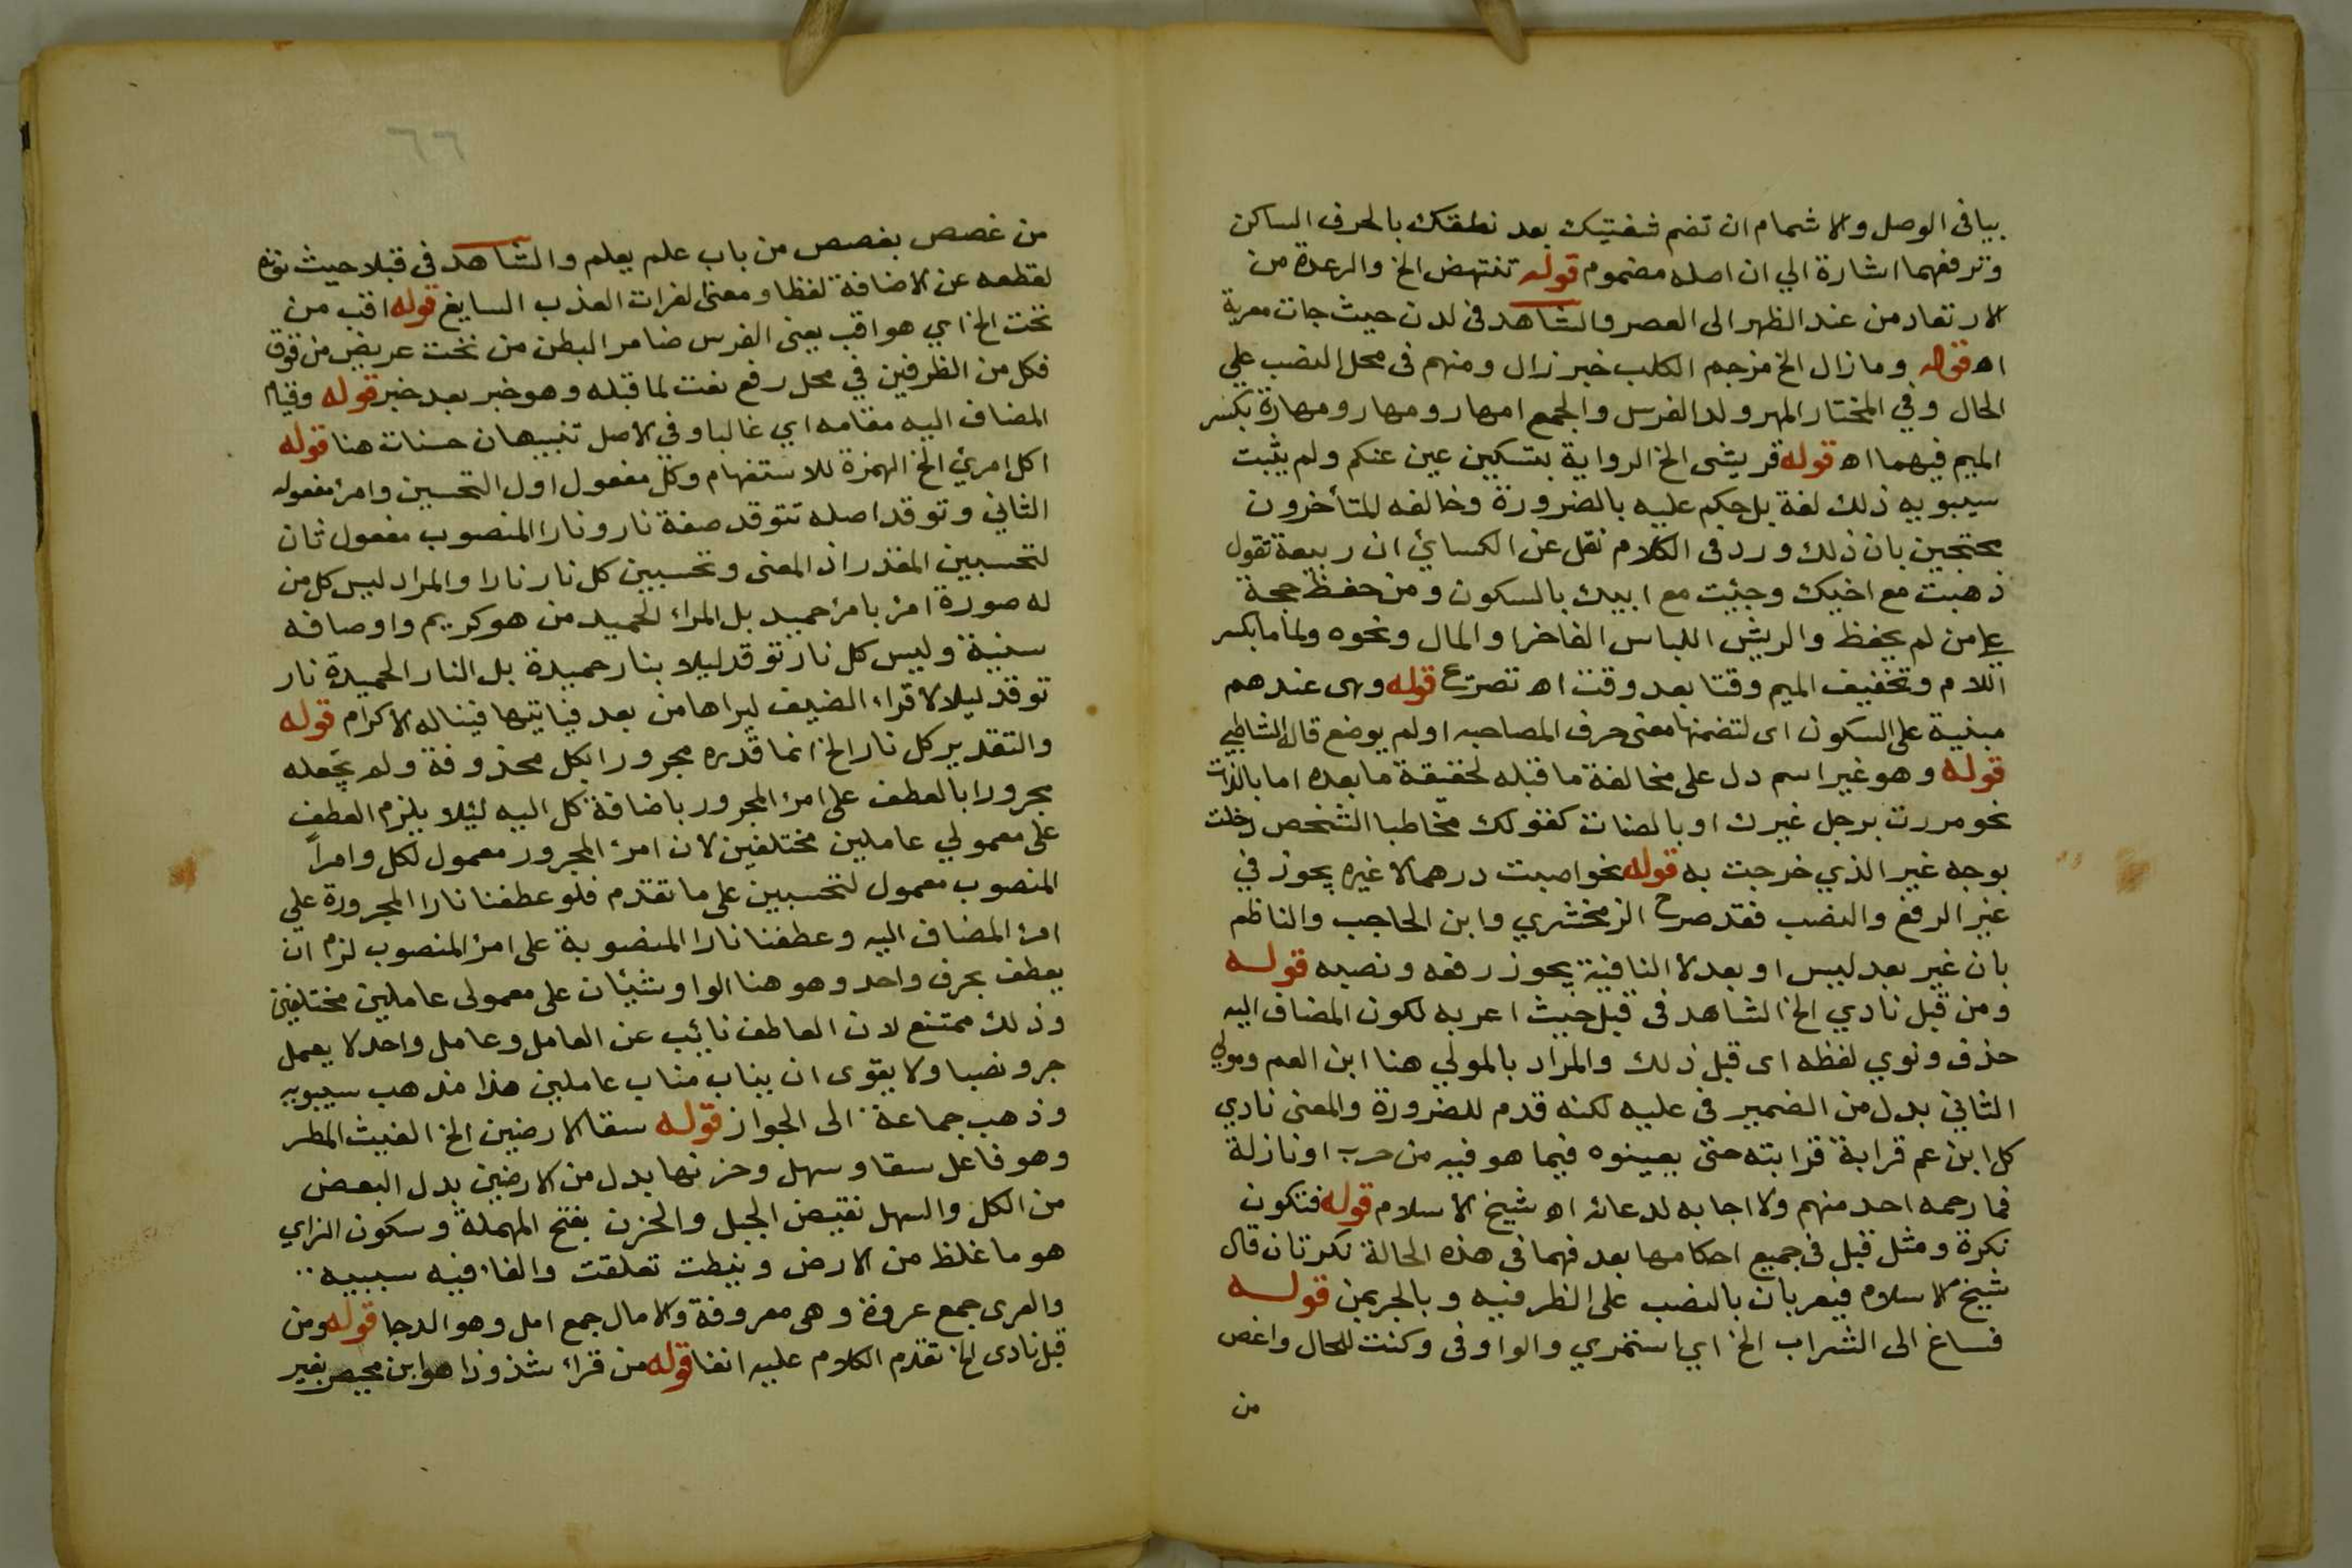 بيا فى الوصل والاشمام ان تضم شفتيك بعد نطقك بالحرف الساكن
وترفعهما اشارة الي ان اصله مضموم قوله تنتهض الخ والرعدة من
الارتعاد من عند الظهر الى العصر والشاهد فى لدن حيث جات معربة
اه قوله وما زال الخ مزجم الكلب خبر زال ومنهم فى محل النصب علي
الحال وفي المختار المهر ولد الفرس والجمع امهار ومهار ومهارة بكسر
الميم فيهما اه قوله قريشى الخ الرواية بتسكين عين عنكم ولم يثبت
سيبويه ذلك لغة بل حكم عليه بالضرورة وخالفه المتأخرون
محتجين بان ذلك ورد فى الكلام نقل عن الكسائي ان ربيعة تقول
ذهبت مع اخيك وجئت مع ابيك بالسكون ومن حفظ حجة
علي من لم يحفظ والريش اللباس الفاخر او المال ونحوه ولماما بكسر
اللام وتخفيف الميم وقتا بعد وقت اه تصريح قوله وهى عندهم
مبنية على السكون اى لتضمنها معنى حرف المصاحبه او لم يوضع قاله الشاطبي
قوله وهو غير اسم دل على مخالفة ما قبله لحقيقة ما بعده اما بالذات
نحو مررت برجل غيرك او بالصفات كقولك مخاطبا الشخص دخلت
بوجه غير الذي خرجت به قوله نحو اصبت درهما لا غيره يجوز في
غير الرفع والنصب فقد صرح الزمخشري وابن الحاجب والناظم
بان غير بعد ليس او بعد لا النافية يجوز رفعه ونصبه قوله
ومن قبل نادي الخ الشاهد فى قبل حيث اعربه لكون المضاف اليه
حذف ونوي لفظه اى قبل ذلك والمراد بالمولي هنا ابن العم ومولى
الثاني بدل من الضمير فى عليه لكنه قدم للضرورة والمعنى نادي
كل ابن عم قرابة قرابته حتى يعينوه فيما هو فيه من حرب او نازلة
فما رحمه احد منهم ولا اجابه لدعائه اه شيخ الاسلام قوله فتكون
نكرة ومثل قبل فى جميع احكامها بعد فهما فى هذه الحالة نكرتان قال
شيخ الاسلام فيعربان بالنصب على الظرفيه وبالجر بمن قوله
فساغ الى الشراب الخ اي استمري والواو فى وكنت للحال واغص
من
٦٦
من غصص يغصص من باب علم يعلم والشاهد فى قبلا حيث نونه
لقطعه عن الاضافة لفظا ومعنى الفرات العذب السايغ قوله اقب من
تحت الخ اي هو اقب يعنى الفرس ضامر البطن من تحت عريض من فوق
فكل من الظرفين في محل رفع نعت لما قبله وهو خبر بعد خبر قوله وقيام
المضاف اليه مقامه اي غالبا وفي الاصل تنبيهان حسنات هنا قوله
اكل امرئ الخ الهمزة للاستفهام وكل مفعول اول التحسبين وامرا مفعوله
الثاني وتوقد اصله تتوقد صفة نار ونارا المنصوب مفعول ثان
لتحسبين المقدر اذ المعنى وتحسبين كل نار نارا والمراد ليس كل من
له صورة امرئ بامرئ حميد بل المراد الحميد من هو كريم واوصافه
سنية وليس كل نار توقد ليلا بنار حميدة بل النار الحميدة نار
توقد ليلا لاقراء الضيف ليراها من بعد فياتيها فيناله الاكرام قوله
والتقدير كل نار الخ انما قدره مجرورا بكل محذوفة ولم يجعله
مجرورا بالعطف على امرئ المجرور باضافة كل اليه ليئلا يلزم العطف
على معمولي عاملين مختلفين لان امرئ المجرور معمول لكل وامراً
المنصوب معمول لتحسبين على ما تقدم فلو عطفنا نارا المجرورة علي
امرئ المضاف اليه وعطفنا نارا المنصوبة على امرئ المنصوب لزم ان
يعطف بحرف واحد وهو هنا الواو شيئان على معمولى عاملين مختلفين
وذلك ممتنع لان العاطف نائب عن العامل وعامل واحد لا يعمل
جر ونصبا ولا يقوى ان يناب مناب عاملين هذا مذهب سيبويه
وذهب جماعة الى الجواز قوله سقا الارضين الخ الغيث المطر
وهو فاعل سقا وسهل وحزنها بدل من الارضين بدل البعض
من الكل والسهل نقيض الجبل والحزن بفتح المهملة وسكون الزاي
هو ما غلظ من الارض ونيطت تعلقت والفا فيه سببيه
والعرى جمع عروة وهى معروفة والامال جمع امل وهو الدجا قوله ومن
قبل نادى الخ تقدم الكلام عليه انفا قوله من قرا شذوذا هو ابن محيصن بغير